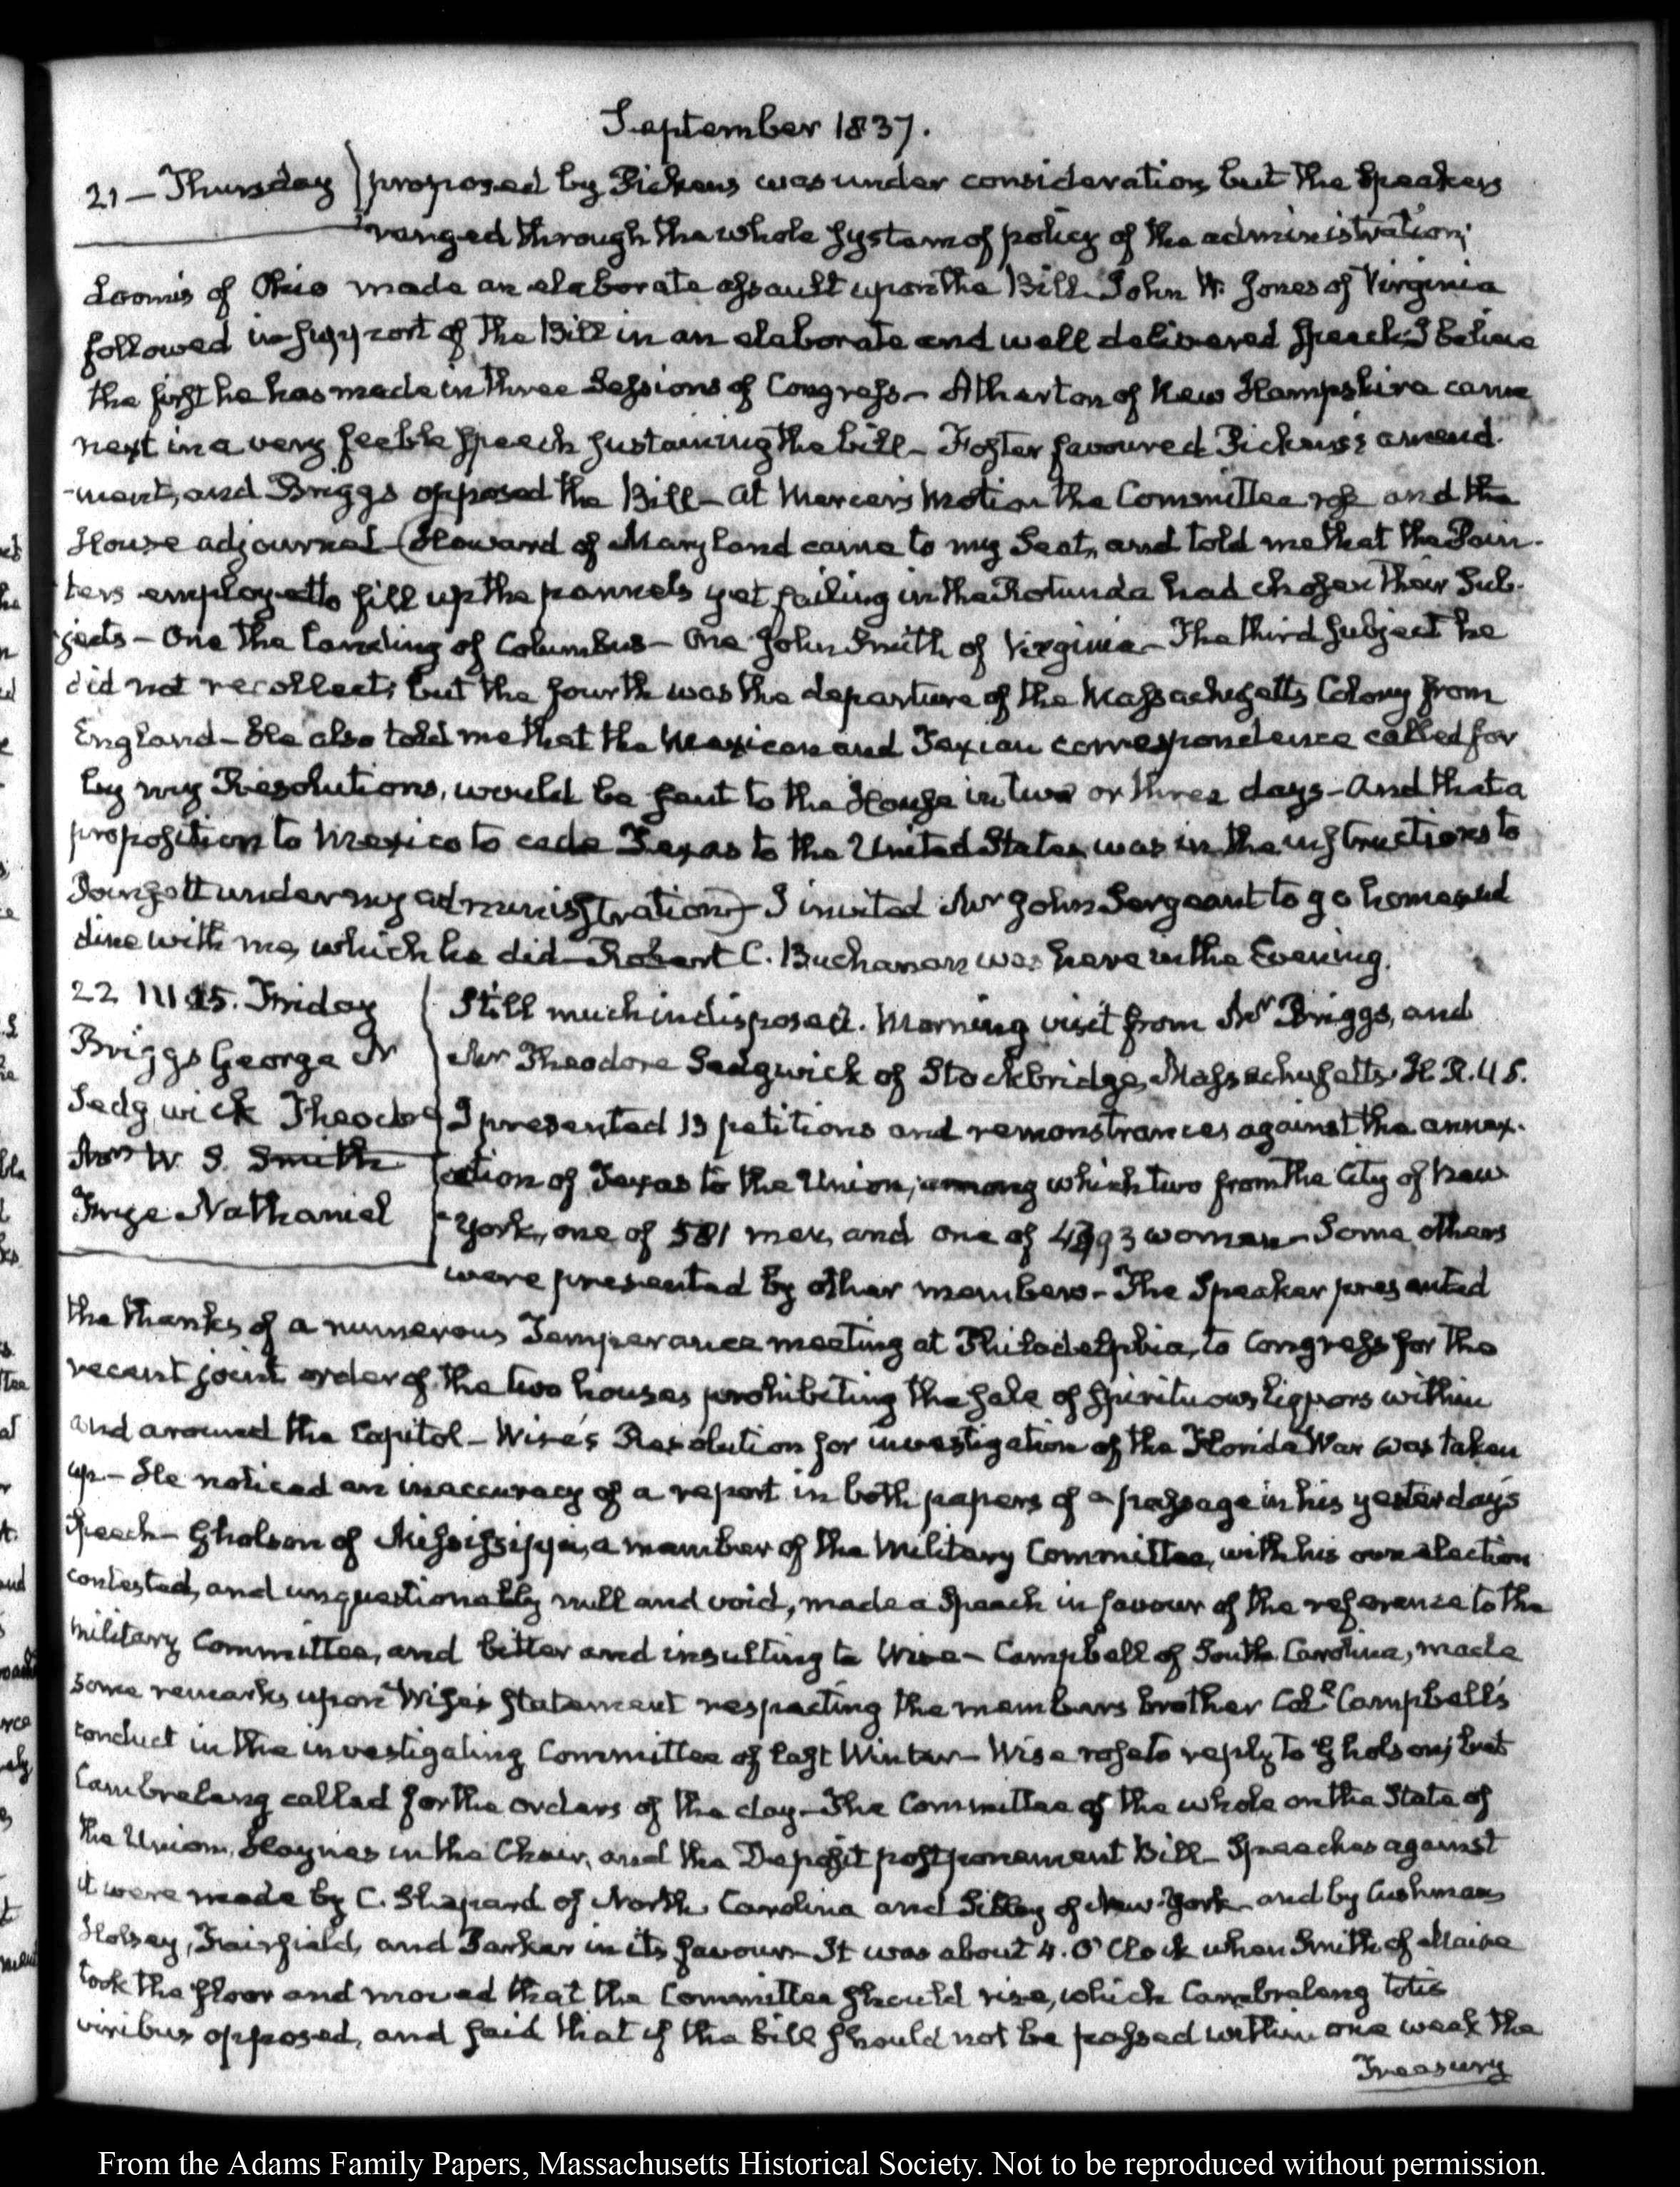 September 1837.
21 – Thursday
proposed by Pickens was under consideration, but the Speakers
ranged through the whole system of policy of the administration;
Loomis of Ohio made an elaborate assault upon the Bill. John W. Jones of Virginia
followed in support of the Bill in an elaborate and well delivered speech; I believe
the first he has made in three Sessions of Congress – Atherton of New Hampshire came
next in a very feeble speech sustaining the bill – Foster favoured Pickens's amend-
-ment, and Briggs opposed the Bill – at Mercer's motion the Committee rose and the
House adjourned – (Howard of Maryland came to my Seat, and told me that the Pain-
ters employed to fill up the pannels yet failing in the Rotunda had chosen their Sub-
jects – One the landing of Columbus – One John Smith of Virginia – The third subject he
did not recollect; but the fourth was the departure of the Massachusetts Colony from
England – He also told me that the Mexican and Texian correspondence called for
by my Resolutions, would be sent to the House in two or three days – And that a
proposition to Mexico to cede Texas to the United States was in the instructions to
Poinsett under my administration) – I invited Mr John Sergeant to go home and
dine with me, which he did – Robert C. Buchanan was here in the Evening.
22 III 15. Friday
Briggs George N
Sedgwick Theodore
Mrs W. S. Smith
Frye Nathaniel
Still much indisposed. Morning visit from Mr Briggs, and
Mr Theodore Sedgwick of Stockbridge, Massachusetts. H.R.U.S.
I presented 13 petitions and remonstrances against the annex-
ation of Texas to the Union; among which two from the City of New
York, one of 581 men, and one of women – Some others
were presented by other members – The Speaker presented
the thanks of a numerous Temperance meeting at Philadelphia, to Congress for the
recent joint order of the two houses prohibiting the sale of spirituous liquors within
and around the Capitol – Wise's Resolution for investigation of the Florida War was taken
up – He noticed an inaccuracy of a report in both papers of a passage in his yesterday's
speech – Gholson of Mississippi, a member of the Military Committee, with his own election
contested, and unquestionably null and void, made a speech in favour of the reference to the
military Committee, and bitter and insulting to Wise – Campbell of South Carolina, made
some remarks upon Wise's statement respecting the members brother Coll Campbell's
conduct in the investigating Committee of last Winter – Wise rose to reply to Gholson; but
Cambreleng called for the orders of the day – The Committee of the whole on the State of
the Union, Haynes in the Chair, and the Deposit postponement Bill – Speeches against
it were made by C. Shepard of North Carolina and Sibley of New-York – and by Cushman,
Holsey, Fairfield, and Parker in its favour – It was about 4. O'Clock when Smith of Maine
took the floor and moved that the Committee should rise, which Cambreleng totis
viribus opposed, and said that if the bill should not be passed within one week the
Treasury
From the Adams Family Papers, Massachusetts Historical Society. Not to be reproduced without permission.